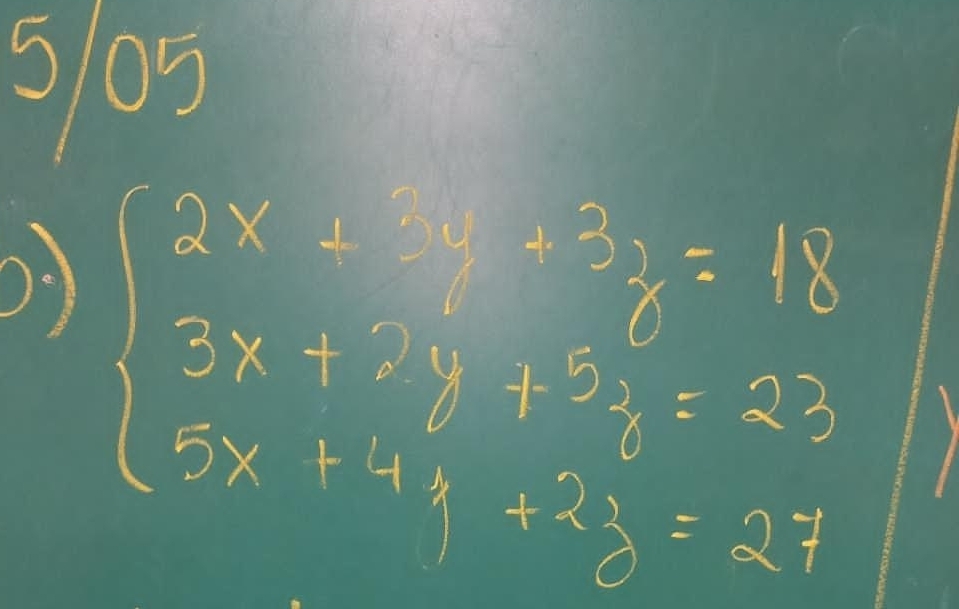 5/05
b) { 2x + 3y + 3z = 18
3x + 2y + 5z = 23
5x + 4y + 2z = 27